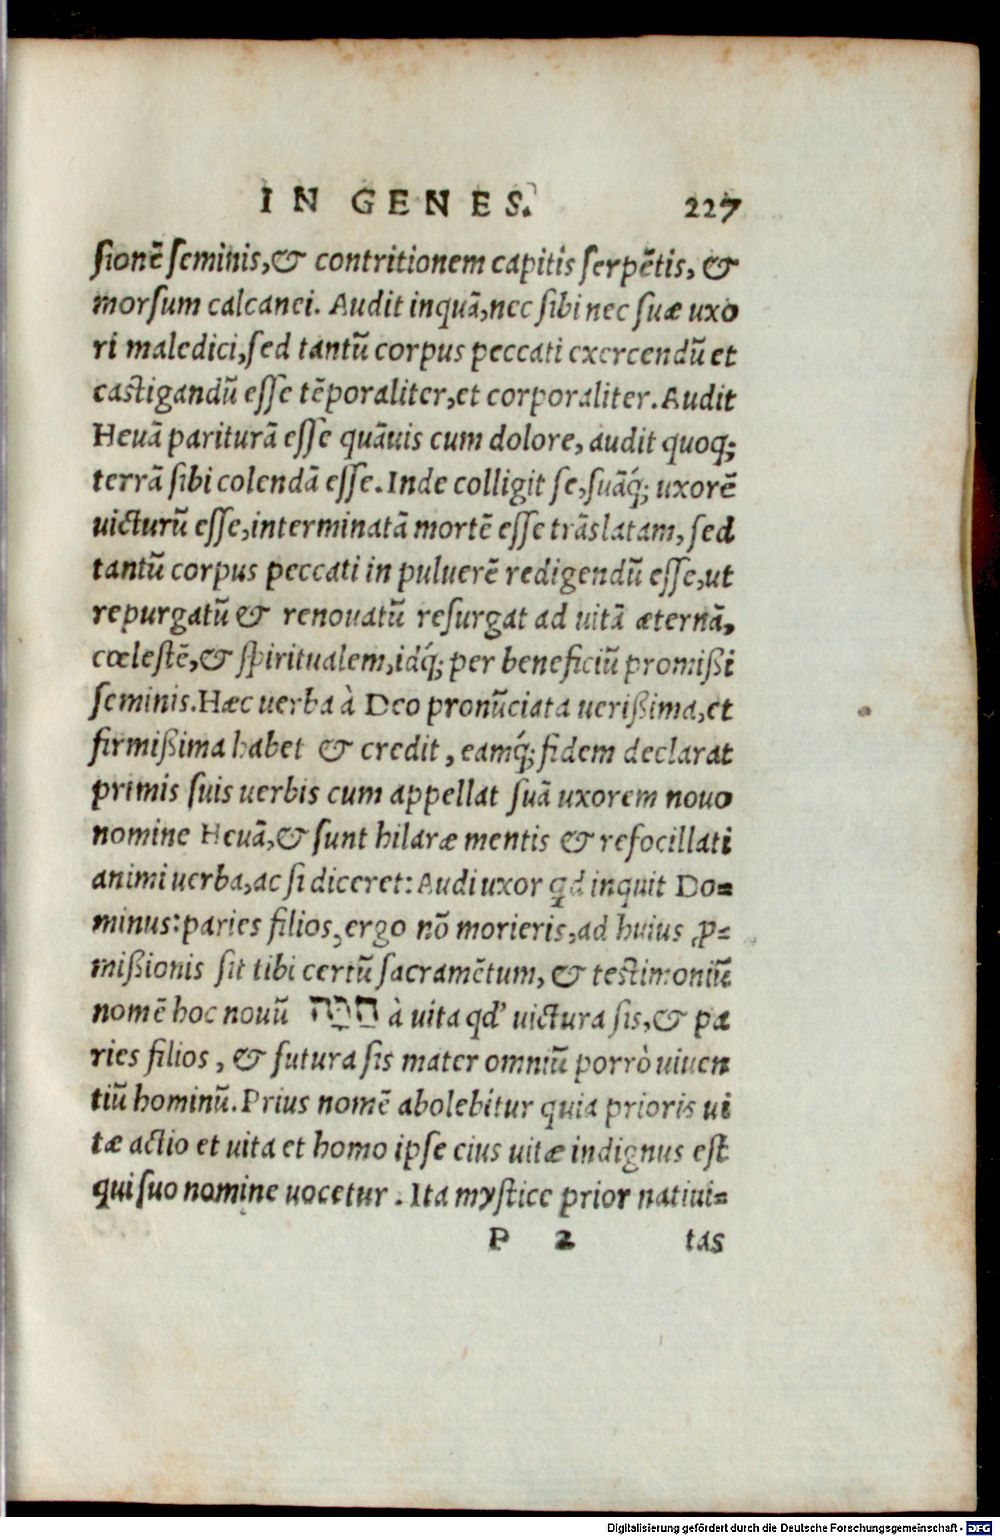 IN GENES. 227
sionē seminis, & contritionem capitis serpētis, &
morsum calcanei. Audit inquā, nec sibi nec suæ uxo
ri maledici, sed tantū corpus peccati exercendū et
castigandū esse tēporaliter, et corporaliter. Audit
Heuā pariturā esse quāuis cum dolore, audit quoq;
terrā sibi colendā esse. Inde colligit se, suāq́; uxorē
uicturū esse, interminatā mortē esse trāslatam, sed
tantū corpus peccati in puluerē redigendū esse, ut
repurgatū & renouatū resurgat ad uitā æternā,
cœlestē, & spiritualem, idq́; per beneficiū promißi
seminis. Hæc uerba à Deo pronūciata uerißima, et
firmißima habet & credit, eamq́; fidem declarat
primis suis uerbis cum appellat suā uxorem nouo
nomine Heuā, & sunt hilaræ mentis & refocillati
animi uerba, ac si diceret: Audi uxor qd inquit Do=
minus: paries filios, ergo nō morieris, ad huius ꝓ=
mißionis sit tibi certū sacramētum, & testimoniū
nomē hoc nouū חַוָּה à uita qd' uictura sis, & pa
ries filios, & futura sis mater omniū porrò uiuen
tiū hominū. Prius nomē abolebitur quia prioris ui
tæ actio et uita et homo ipse eius uitæ indignus est
qui suo nomine uocetur. Ita mystice prior natiui=
P 2 tas
Digitalisierung gefördert durch die Deutsche Forschungsgemeinschaft - DFG